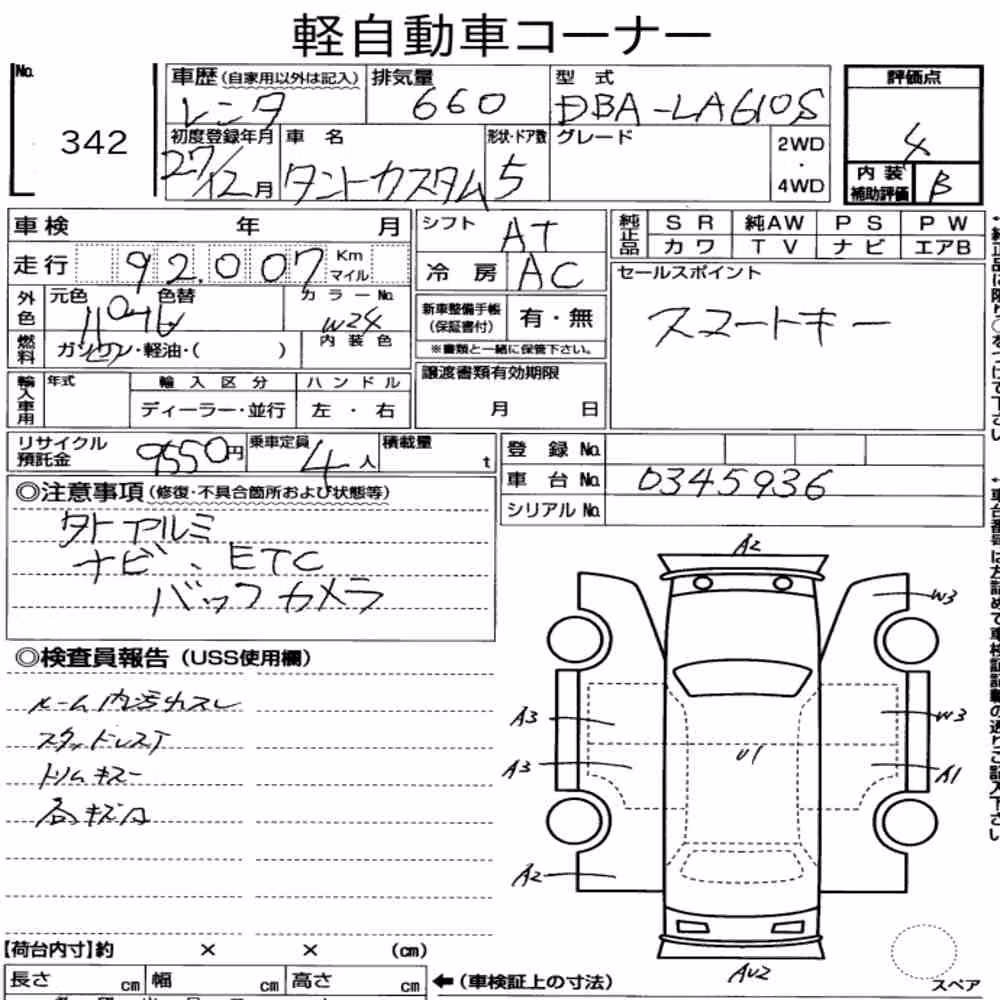 軽自動車コーナー
No. 342
車歴(自家用以外は記入) レンタ
排気量 660
型式 DBA-LA610S
評価点 4
内装補助評価 B
初度登録年月 27/12月
車名 タントカスタム
形状・ドア数 5
グレード
2WD・4WD
車検 年 月
走行 92,007 Km マイル
シフト AT
冷房 AC
純正品 SR 純AW PS PW
カワ TV ナビ エアB
外色 元色 色替 パール
カラーNo. W24
内装色
燃料 ガソリン・軽油・( )
新車整備手帳(保証書付) 有・無
※書類と一緒に保管下さい。
セールスポイント
スマートキー
輸入車用 年式 輸入区分 ハンドル
ディーラー・並行 左・右
譲渡書類有効期限
月 日
リサイクル預託金 9550円
乗車定員 4人
積載量 t
登録No.
車台No. 0345936
シリアルNo.
◎注意事項(修復・不具合箇所および状態等)
外アルミ
ナビ、ETC
バックカメラ
◎検査員報告(USS使用欄)
ルーム内汚れスレ
スタッドレスT
トリムキズ
各キズ凹
A2
W3
A3
W3
U1
A3
A1
A2
AU2
【荷台内寸】約 × × (cm)
長さ cm 幅 cm 高さ cm
←(車検証上の寸法)
スペア